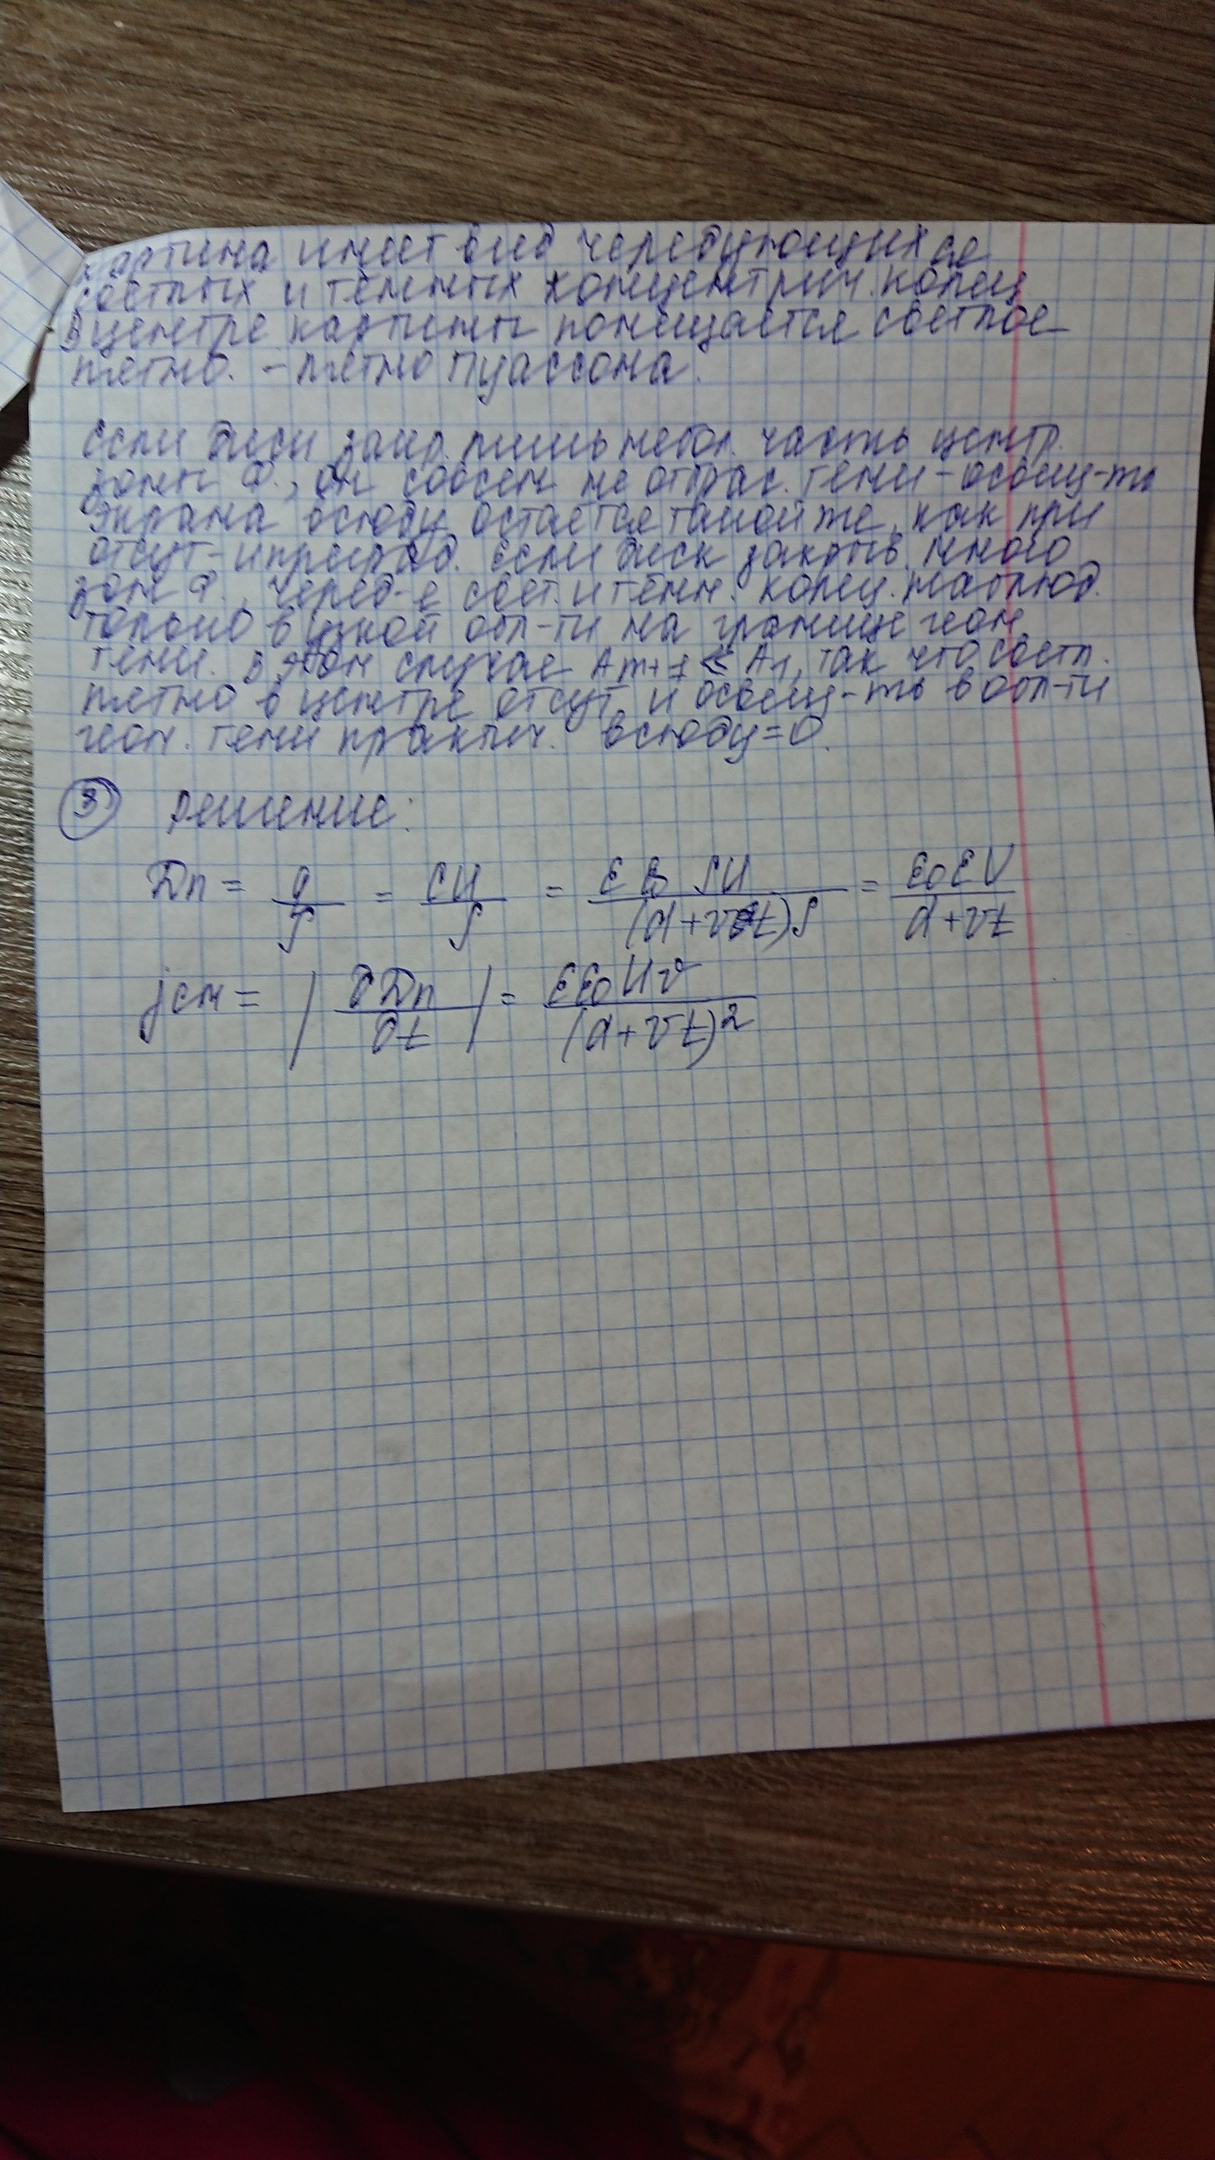 картина имеет вид чередующихся
светлых и тёмных концентрич. колец
В центре картины помещается светлое
пятно. – пятно Пуассона.
Если диск закр. лишь небол. часть центр.
зоны Ф., он совсем не отбрас. тени – освещ-ть
экрана всюду остаётся такой же, как при
отсут-и преград. Если диск закрыв. много
зон Ф., черед-е свет. и тёмн. колец наблюд.
только в узкой обл-ти на границе геом.
тени. В этом случае Am+1 ≪ A1, так что светл.
пятно в центре отсут. и освещ-ть в обл-ти
геом. тени практич. всюду = 0.
③ Решение:
Dn = q/S = CU/S = εε0 SU/((d+vt)S) = ε0εU/(d+vt)
jсм = |∂Dn/∂t| = εε0Uv/(d+vt)²